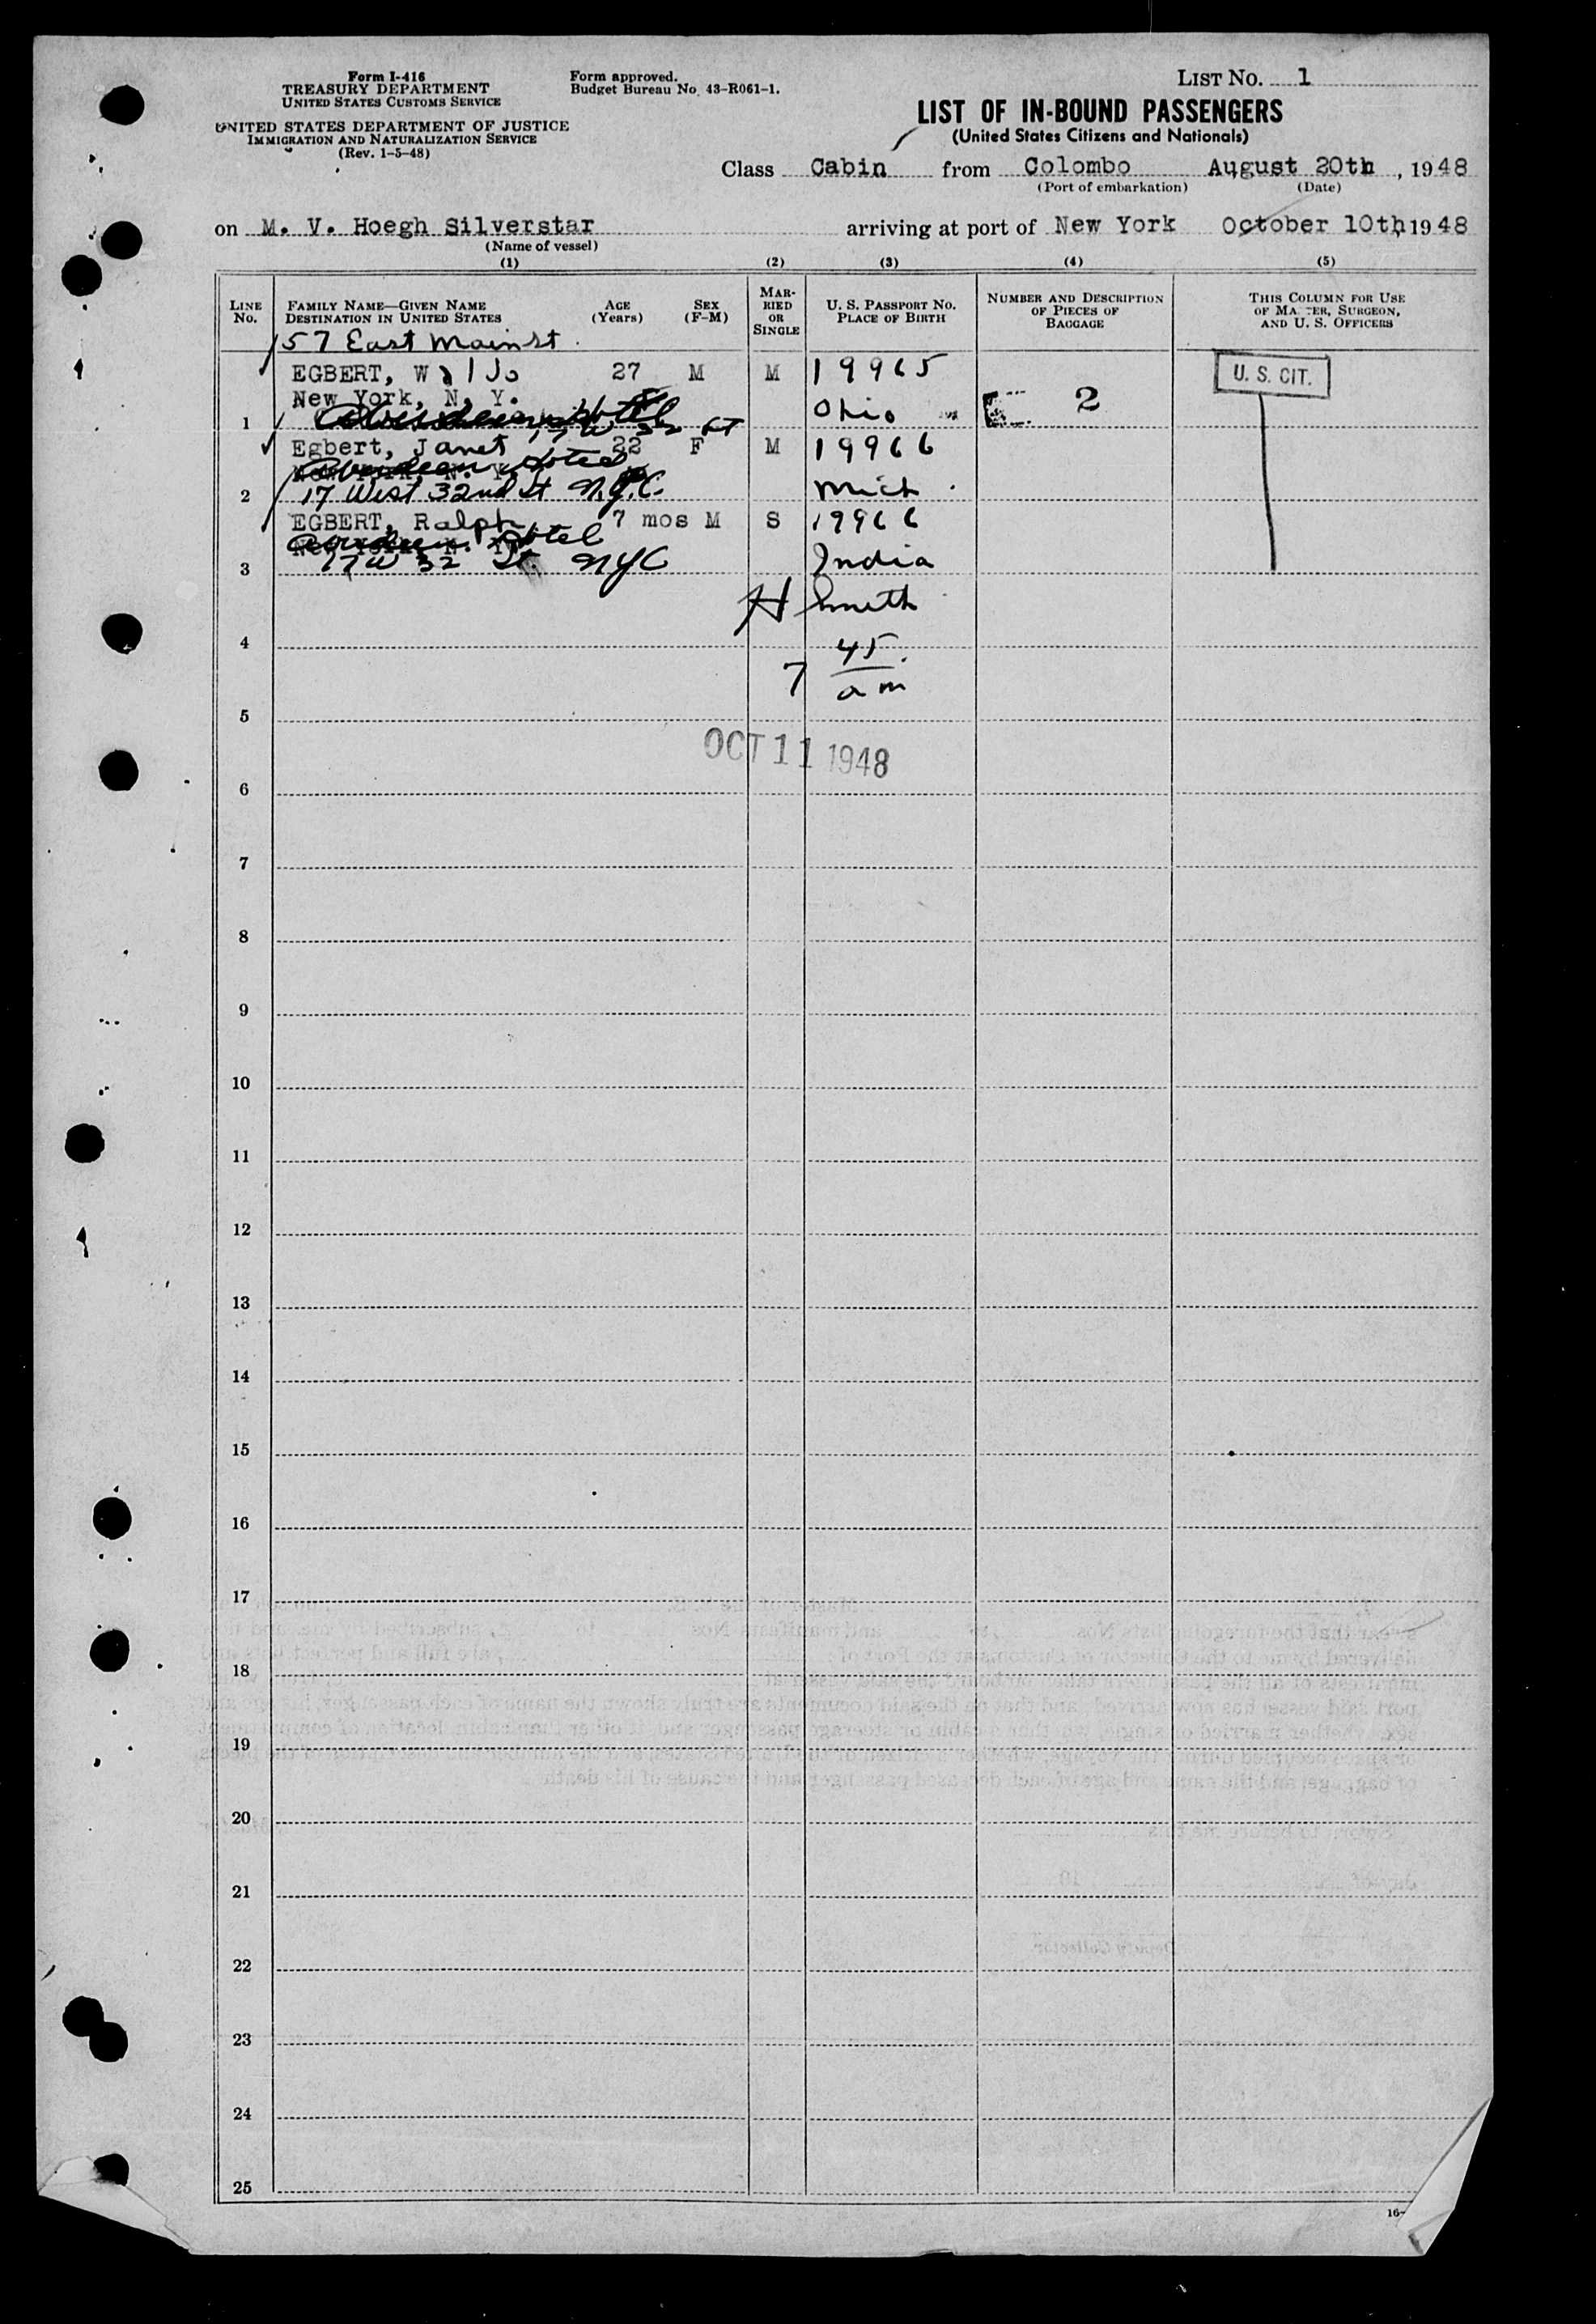 Form I-416
TREASURY DEPARTMENT
UNITED STATES CUSTOMS SERVICE
UNITED STATES DEPARTMENT OF JUSTICE
IMMIGRATION AND NATURALIZATION SERVICE
(Rev. 1-5-48)
Form approved.
Budget Bureau No. 43-R061-1.
LIST NO. 1
LIST OF IN-BOUND PASSENGERS
(United States Citizens and Nationals)
Class Cabin from Colombo August 20th, 1948
(Port of embarkation) (Date)
on M. V. Hoegh Silverstar arriving at port of New York October 10th 1948
(Name of vessel)
(1) (2) (3) (4) (5)
LINE NO. FAMILY NAME—GIVEN NAME DESTINATION IN UNITED STATES AGE (Years) SEX (F-M) MARRIED OR SINGLE U. S. PASSPORT NO. PLACE OF BIRTH NUMBER AND DESCRIPTION OF PIECES OF BAGGAGE THIS COLUMN FOR USE OF MASTER, SURGEON, AND U. S. OFFICERS
57 East Main St.
EGBERT, Waldo 27 M M 19965 U. S. CIT.
New York, N. Y. Ohio 2
1 Hotel 17 W 32 St
Egbert, Janet 22 F M 19966
Aberdeen Hotel
2 17 West 32nd St N.Y.C. Mich.
EGBERT, Ralph 7 mos M S 19966
Aberdeen Hotel
3 17 W 32 St. NYC India
H Smith
4
7 45 am
5
OCT 11 1948
6
7
8
9
10
11
12
13
14
15
16
17
18
19
20
21
22
23
24
25
16-